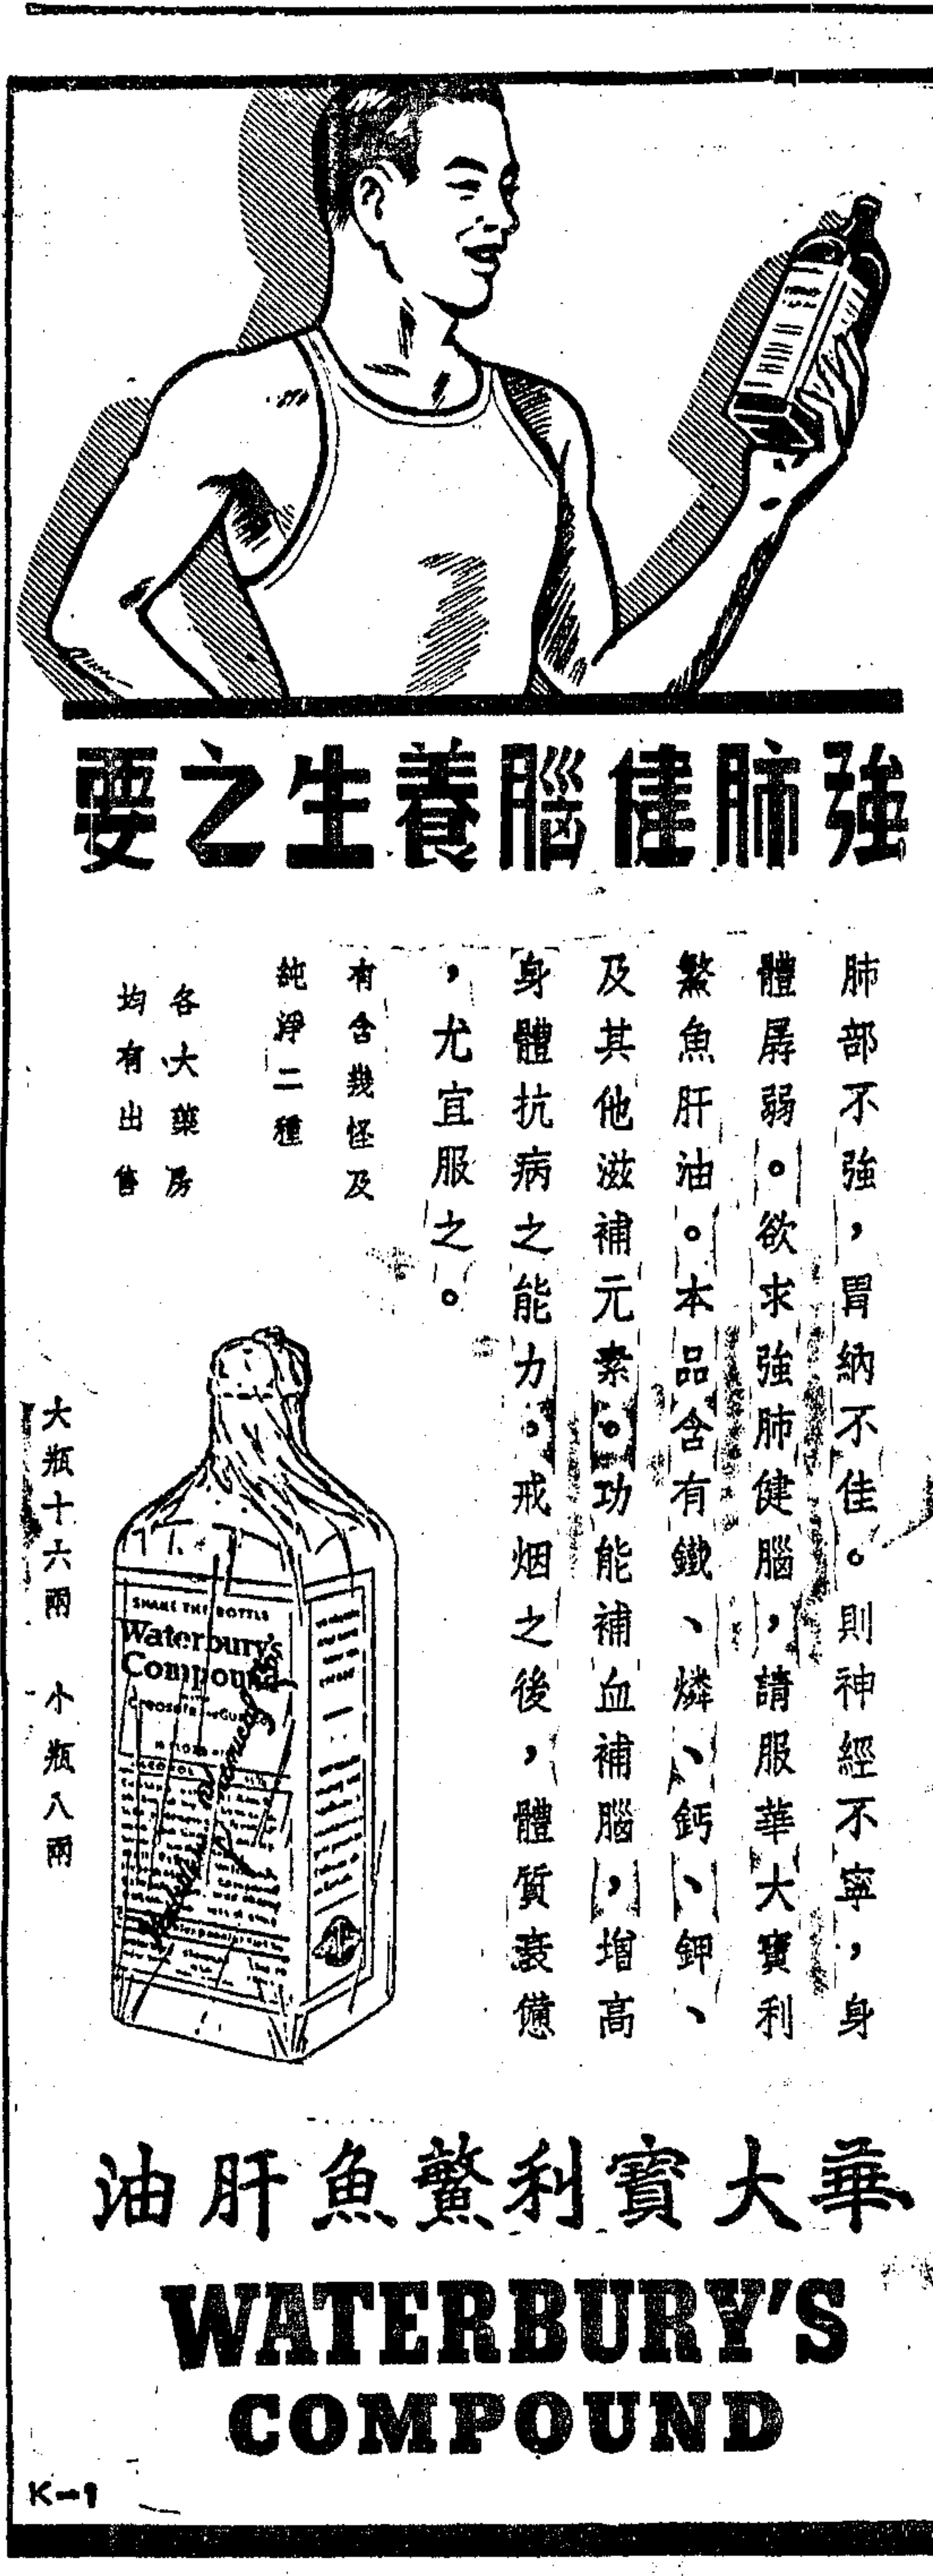 強肺健腦養生之要
肺部不強，胃納不佳。則神經不寧，身
體孱弱。欲求強肺健腦，請服華大寶利
鰵魚肝油。本品含有鐵、燐、鈣、鉀、
及其他滋補元素。功能補血補腦，增高
身體抗病之能力。戒烟之後，體質衰憊
，尤宜服之。
有含幾怪及
純淨二種
各大藥房
均有出售
大瓶十六兩 小瓶八兩
SHAKE THE BOTTLE
Waterbury's
Compound
ALCOHOL
華大寶利鰵魚肝油
WATERBURY'S
COMPOUND
K-9